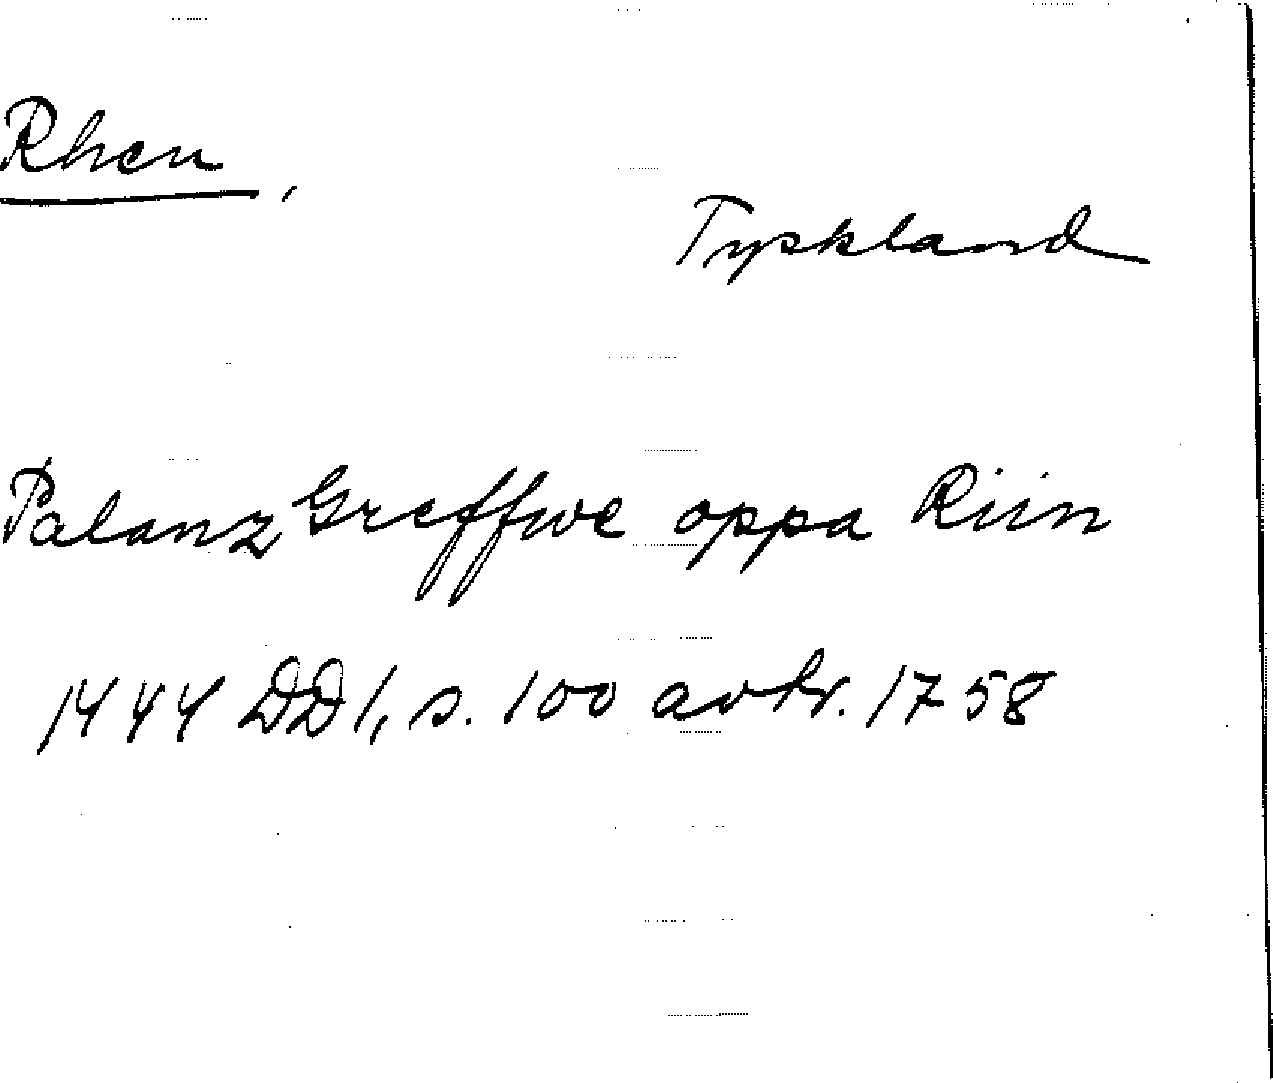 Rhen,
Tyskland
PalanzGreffwe oppa Riin
1444 DD1, s. 100 avkr. 1758